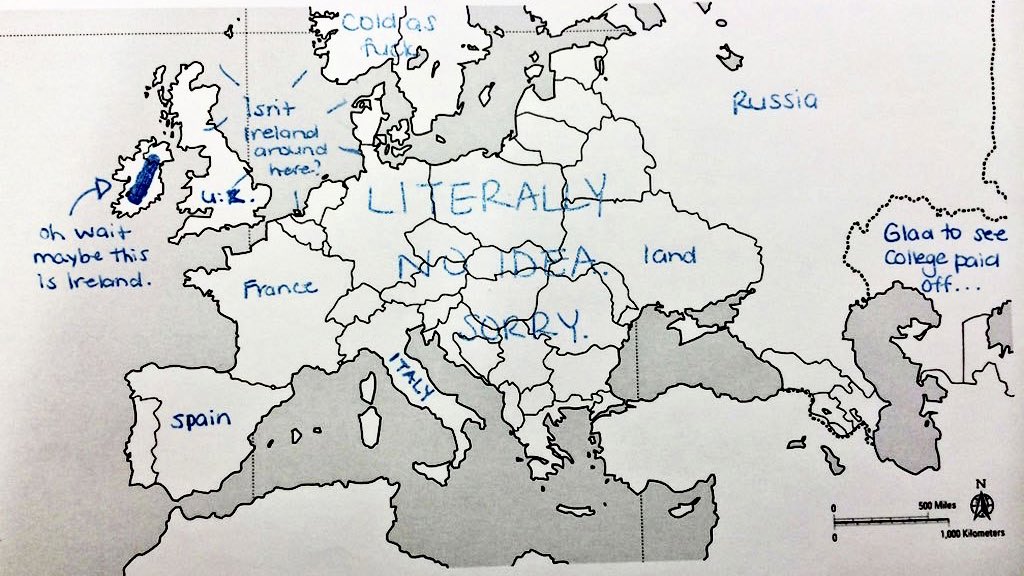 Cold as
fuck
Isn't
Ireland
around
here?
Russia
U.K.
oh wait
maybe this
is Ireland.
LITERALLY
NO IDEA.
SORRY.
land
Glad to see
College paid
off...
France
ITALY
Spain
N
0 500 Miles
0 1,000 Kilometers